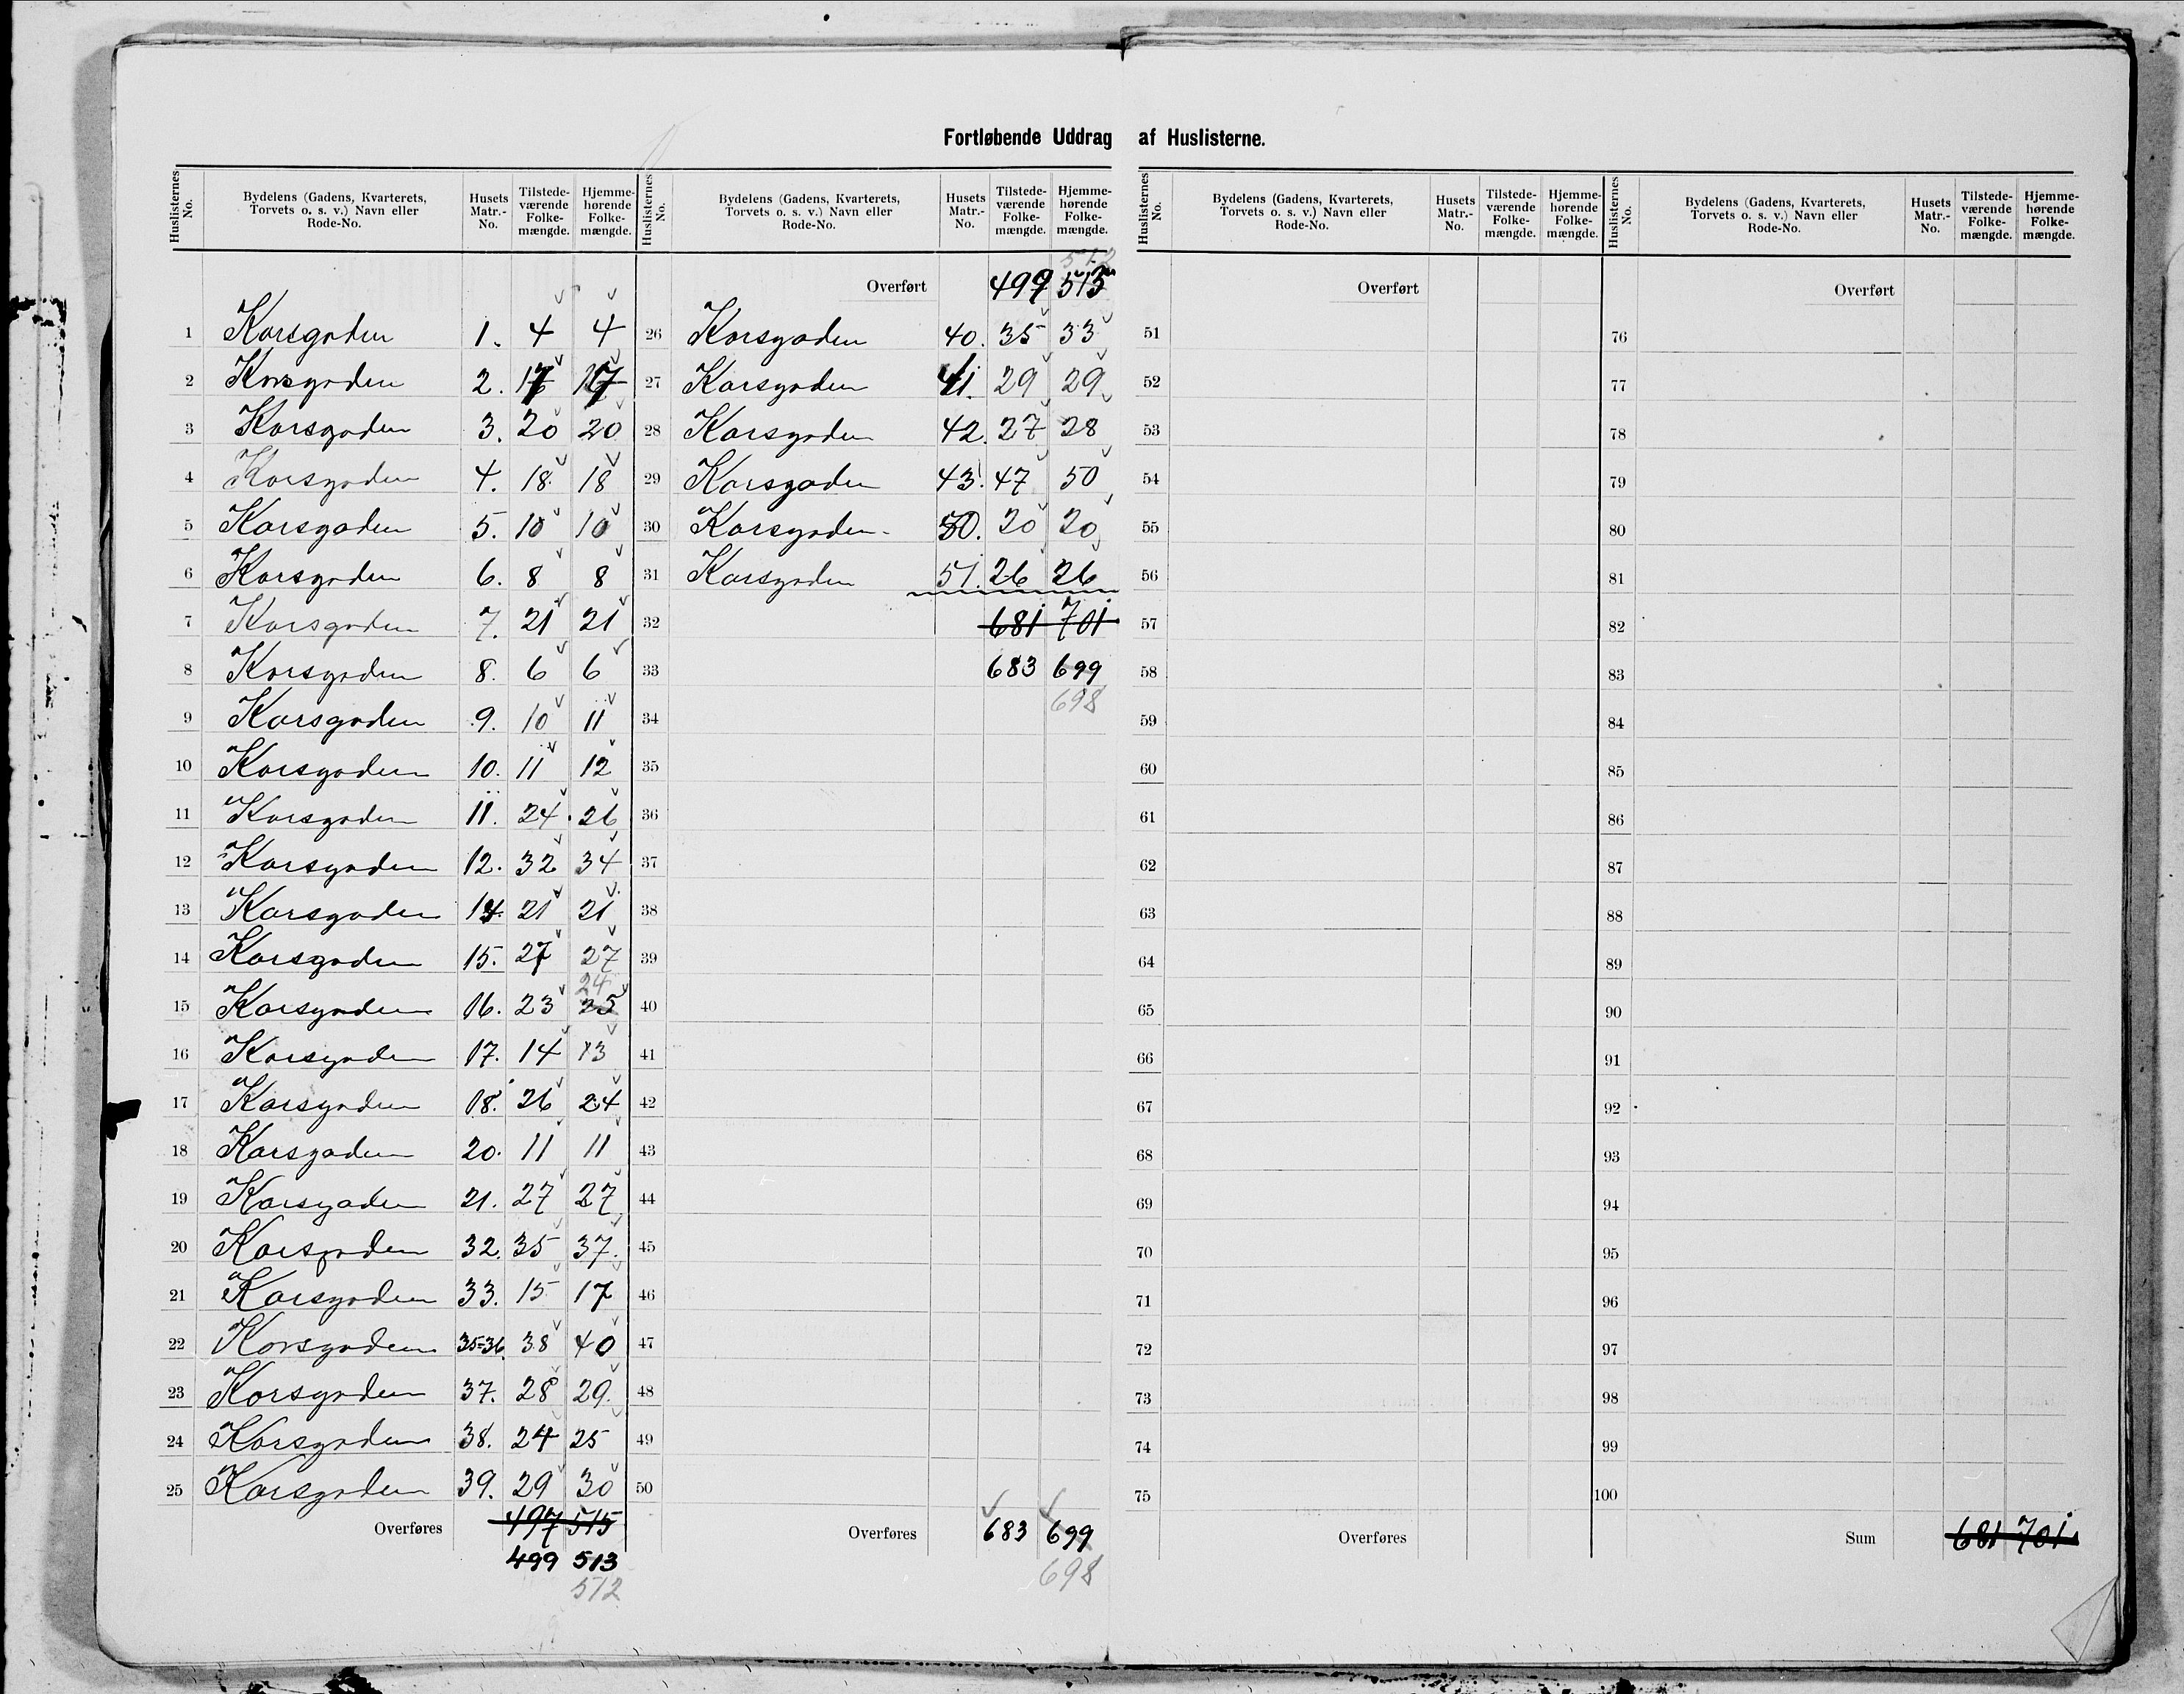 Fortløbende Uddrag af Huslisterne.
Huslisternes No. | Bydelens (Gadens, Kvarterets, Torvets o. s. v.) Navn eller Rode-No. | Husets Matr.-No. | Tilstede-værende Folke-mængde. | Hjemme-hørende Folke-mængde.
1 Korsgaden 1. 4 4
2 Korsgaden 2. 17 17
3 Korsgaden 3. 20 20
4 Korsgaden 4. 18 18
5 Korsgaden 5. 10 10
6 Korsgaden 6. 8 8
7 Korsgaden 7. 21 21
8 Korsgaden 8. 6 6
9 Korsgaden 9. 10 11
10 Korsgaden 10. 11 12
11 Korsgaden 11. 24 26
12 Korsgaden 12. 32 34
13 Korsgaden 14. 21 21
14 Korsgaden 15. 27 27
24
15 Korsgaden 16. 23 25
16 Korsgaden 17. 14 13
17 Korsgaden 18. 26 24
18 Korsgaden 20. 11 11
19 Korsgaden 21. 27 27
20 Korsgaden 32. 35 37.
21 Korsgaden 33. 15 17
22 Korsgaden 35-36. 38 40
23 Korsgaden 37. 28 29.
24 Korsgaden 38. 24 25
25 Korsgaden 39. 29 30
Overføres 497 515
499 513
512
Huslisternes No. | Bydelens (Gadens, Kvarterets, Torvets o. s. v.) Navn eller Rode-No. | Husets Matr.-No. | Tilstede-værende Folke-mængde. | Hjemme-hørende Folke-mængde.
512
Overført 499 513
26 Korsgaden 40. 35 33
27 Korsgaden 41. 29 29
28 Korsgaden 42. 27 28
29 Korsgaden 43. 47 50
30 Korsgaden 50. 20 20
31 Korsgaden 51. 26 26
32 681 701
33 683 699
698
34
35
36
37
38
39
40
41
42
43
44
45
46
47
48
49
50
Overføres 683 699
698
Huslisternes No. | Bydelens (Gadens, Kvarterets, Torvets o. s. v.) Navn eller Rode-No. | Husets Matr.-No. | Tilstede-værende Folke-mængde. | Hjemme-hørende Folke-mængde.
Overført
51
52
53
54
55
56
57
58
59
60
61
62
63
64
65
66
67
68
69
70
71
72
73
74
75
Overføres
Huslisternes No. | Bydelens (Gadens, Kvarterets, Torvets o. s. v.) Navn eller Rode-No. | Husets Matr.-No. | Tilstede-værende Folke-mængde. | Hjemme-hørende Folke-mængde.
Overført
76
77
78
79
80
81
82
83
84
85
86
87
88
89
90
91
92
93
94
95
96
97
98
99
100
Sum 681 701